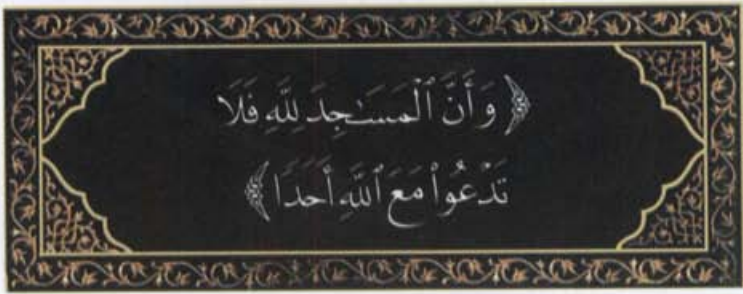 ﴿وَأَنَّ ٱلْمَسَـٰجِدَ لِلَّهِ فَلَا
تَدْعُوا۟ مَعَ ٱللَّهِ أَحَدًا﴾